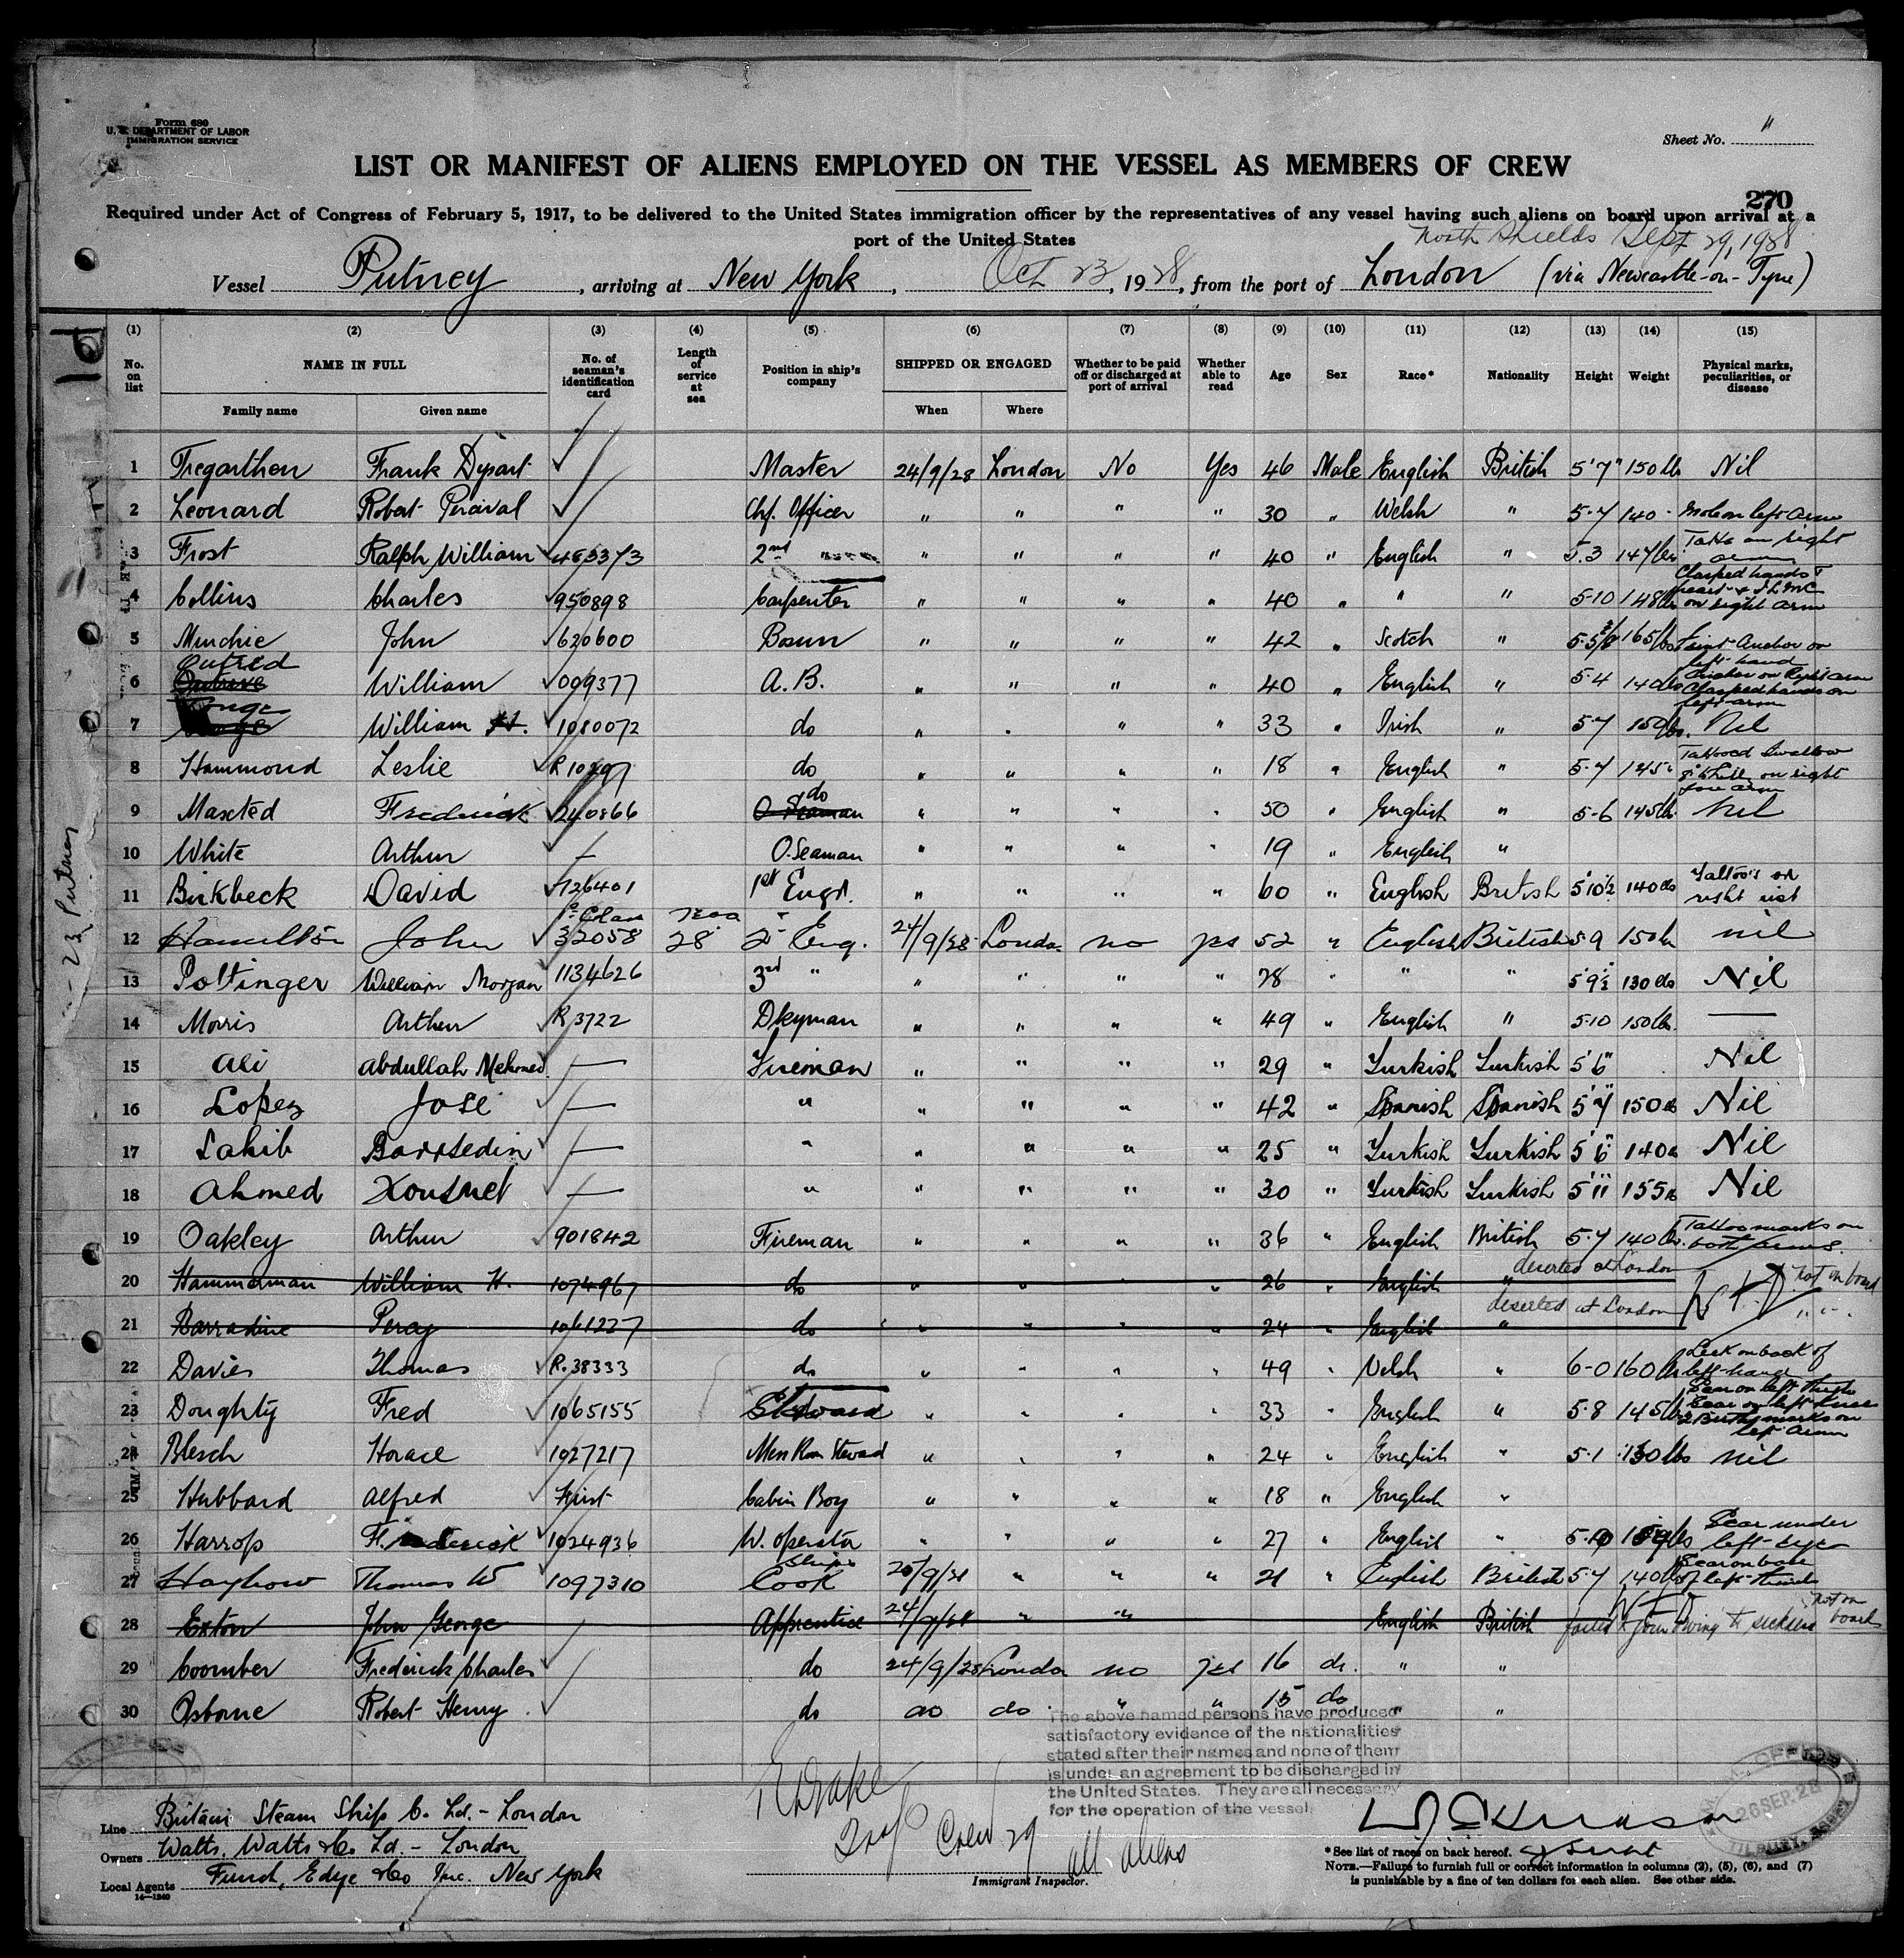 Form 680
U. S. DEPARTMENT OF LABOR
IMMIGRATION SERVICE
Sheet No.
LIST OR MANIFEST OF ALIENS EMPLOYED ON THE VESSEL AS MEMBERS OF CREW
270
Required under Act of Congress of February 5, 1917, to be delivered to the United States immigration officer by the representatives of any vessel having such aliens on board upon arrival at a
port of the United States
North Shields Sept 29, 1928
Vessel Putney, arriving at New York, Oct 23, 1928, from the port of London (via Newcastle-on-Tyne)
(1) (2) (3) (4) (5) (6) (7) (8) (9) (10) (11) (12) (13) (14) (15)
No. on list NAME IN FULL No. of seaman's identification card Length of service at sea Position in ship's company SHIPPED OR ENGAGED Whether to be paid off or discharged at port of arrival Whether able to read Age Sex Race* Nationality Height Weight Physical marks, peculiarities, or disease
Family name Given name When Where
1 Tregarthen Frank Master 24/9/28 London No Yes 46 Male English British 5'7" 150 lb Nil
2 Leonard Robert Percival Chf. Officer " " " " 30 " Welsh " 5-7 140 Mole on left arm
3 Frost Ralph William 2nd " " " " " 40 " English " 5.3 147 lbs Tatto on right arm
4 Collins Charles 950898 Carpenter " " " " 40 " " " 5-10 148 lbs Clasped hands on right arm
5 Murchie John 620600 Bosun " " " " 42 " Scotch " 165 lbs Faint Anchor on left hand
6 Outred William 009377 A.B. " " " " 40 " English " 5-4 140 lbs Anchor on Right arm Clasped hands on left arm
7 William 1080072 do " " " " 33 " Irish " 5-7 150 lbs. Nil
8 Hammond Leslie do " " " " 18 " English " 5-7 145 Tattooed Swallow on right fore arm
9 Maxted Frederick 240866 O Seaman do " " " " 50 " English " 5-6 145 lb. Nil
10 White Arthur — O. Seaman " " " " 19 " English "
11 Birkbeck David 726401 1st Engr. " " " " 60 " English British 5'10½ 140 lbs Tattoo's on right rist
12 Hamilton John 32058 28 2 Eng. 24/9/28 London no yes 52 " English British 5-9 150 lb nil
13 Pottinger William Morgan 1134626 3rd " " " " " 28 " " " 5'9½ 130 lbs Nil
14 Morris Arthur R 3722 Dkyman " " " " 49 " English " 5-10 150 lb. —
15 Ali Abdullah Mehmed — Fireman " " " " 29 " Turkish Turkish 5'6" Nil
16 Lopez José — " " " " " 42 " Spanish Spanish 5'7" 150 lb Nil
17 Sahib — " " " " " 25 " Turkish Turkish 5'6" 140 lb Nil
18 Ahmed — " " " " " 30 " Turkish Turkish 155 lb Nil
19 Oakley Arthur 901842 Fireman " " " " 36 " English British 5-7 140 lb. Tattoo marks on both arms.
20 Hammerman William H. 1074967 do " " " " 26 " English " deserted at London not on board
21 Barradine Percy 1061227 do " " " " 24 " English " deserted at London " " "
22 Davies Thomas R. 38333 do " " " " 49 " Welsh " 6-0 160 lb on back of left hand
23 Doughty Fred 1065155 Steward " " " " 33 " English " 5-8 145 lb Scar on left thigh Scar on left knee 2 Birth marks on left arm
24 Blesch Horace 1027217 Mess Room Steward " " " " 24 " English " 5-1 130 lbs nil
25 Hubbard Alfred First Cabin Boy " " " " 18 " English "
26 Harrop Frederick 1024936 W. operator " " " " 27 " English " 5-10 lbs Scar under left eye
27 Haybow Thomas W 1097310 Ships Cook " " " 21 " English British 5-7 140 lb Scar on base of left thumb
28 Exton John George Apprentice 24/9/28 " " English British failed to join owing to sickness not on board
29 Coomber Frederick Charles do 24/9/28 London no yes 16 do. " "
30 Osborne Robert Henry do do do " " 15 do " "
The above named persons have produced
satisfactory evidence of the nationalities
stated after their names and none of them
is under an agreement to be discharged in
the United States. They are all necessary
for the operation of the vessel.
Line Britain Steam Ship Co. Ld. - London
Owners Walts, Watts & Co Ld - London
Local Agents Funch, Edye & Co Inc. New York
14-1240
Crew 29 all aliens
Immigrant Inspector.
26 SEP. 28
TILBURY, ESSEX
* See list of races on back hereof.
NOTE.—Failure to furnish full or correct information in columns (2), (5), (6), and (7)
is punishable by a fine of ten dollars for each alien. See other side.